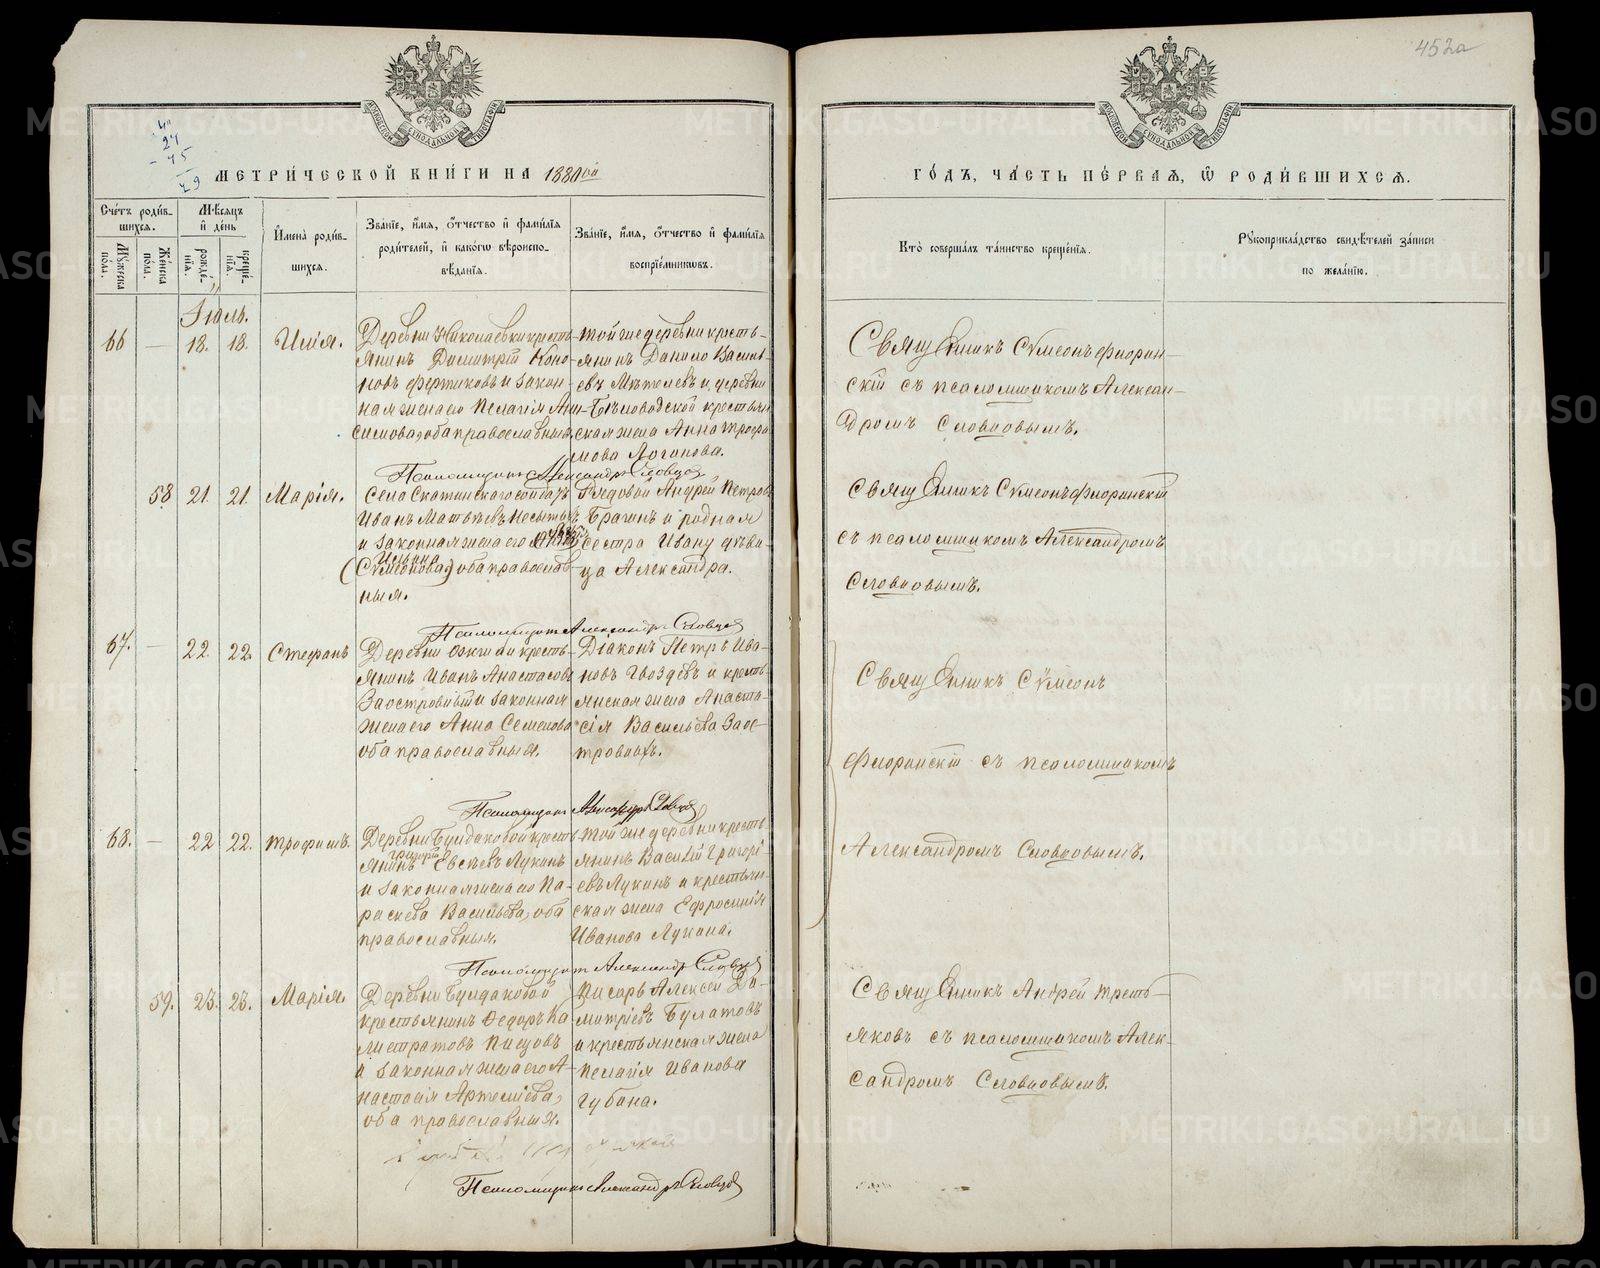 452а
МЕТРИ́ЧЕСКОЙ КНИ́ГИ НА 1880ой
ГО́ДЪ, ЧА́СТЬ ПЕ́РВАЯ, Ѡ РОДИ́ВШИХСЯ.
Сче́тъ роди́в-
шихся.
Мѣсяцъ
и де́нь
Му́жеска по́ла.
Же́нска по́ла.
рожде́-нія.
креще́-нія.
Имена̀ роди́в-
шихся.
Зва́нїе, и́мя, о́тчество и фами́лїя
роди́телей, и како́гѡ вѣроиспо-
вѣданїя.
Зва́нїе, и́мя, о́тчество и фами́лїя
воспрїе́мниковъ.
Кто̀ соверша́лъ та́инство креще́нїя.
Рукоприкла́дство свидѣтелей за́писи
по жела́нїю.
Іюль.
66 — 18. 18. Илія.
Деревни Николаевки кресть-
янинъ Димитрій Коно-
новъ Фертиковъ и закон-
ная жена его Пелагія Ани-
симова, оба православныя.
той же деревни кресть-
янинъ Данило Василь-
евъ Мѣтелевъ и деревни
Бѣловодской крестьян-
ская жена Анна Трофи-
мова Логинова.
Священникъ Сѵмеонъ Флорин-
скій съ псаломщикомъ Алексан-
дромъ Словцовымъ.
Псаломщикъ Александръ Словцов
58 21. 21. Марія.
Села Скатинскаго солдатъ
Иванъ Матвѣевъ Несытыхъ
и законная жена его
Ильина
(Сѵмеонова) оба православ-
ныя.
Рядовой Андрей Петровъ
Брагинъ и родная
сестра Ивану дѣви-
ца Александра.
Священникъ Сѵмеонъ Флоринскій
съ псаломщикомъ Александромъ
Словцовымъ.
Псаломщикъ Александръ Словцов
67. — 22 22. Стефанъ
Деревни кресть-
янинъ Иванъ Анастасовъ
Заостровныхъ и законная
жена его Анна Семенова
оба православныя.
Діаконъ Петръ Ива-
новъ Гвоздевъ и кресть-
янская жена Анаста-
сія Васильева Заос-
тровныхъ.
Священникъ Сѵмеонъ
Флоринскій съ псаломщикомъ
Александромъ Словцовымъ.
Псаломщикъ Александръ Словцов
68. — 22 22. Трофимъ.
Деревни Булдаковой кресть-
янинъ Григорій Евсѣевъ Лукинъ
и законная жена его Па-
раскева Васильева, оба
православныя.
той же деревни кресть-
янинъ Василій Григорі-
евъ Лукинъ и крестьян-
ская жена Ефросинія
Иванова Лукина.
Псаломщикъ Александръ Словцов
59. 23. 23. Марія.
Деревни Булдаковой
крестьянинъ Ѳедоръ Ка-
листратовъ Пищовъ
и законная жена его А-
настасія Артемьева,
оба православныя.
Писарь Алексѣй Ди-
митріевъ Булатовъ
и крестьянская жена
Пелагія Иванова
Губина.
Священникъ Андрей Треть-
яковъ съ псаломщикомъ Алек-
сандромъ Словцовымъ.
Псаломщикъ Александръ Словцов